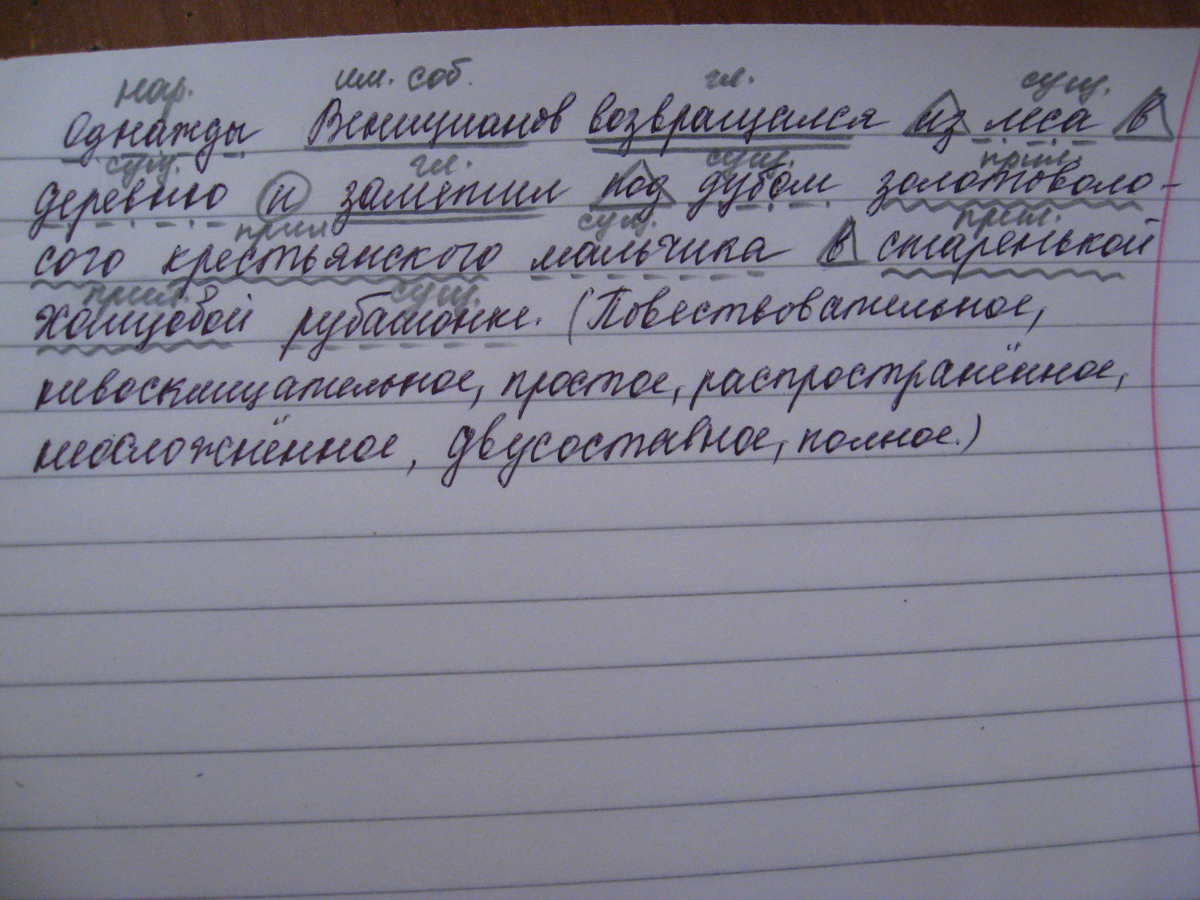 нар. им. соб. гл. сущ.
Однажды Веницианов возвращался из леса в
сущ. гл. сущ. прил.
деревню и заметил под дубом золотоволо-
прил сущ. прил.
сого крестьянского мальчика в старенькой
прил. сущ.
холщовой рубашонке. (Повествовательное,
невосклицательное, простое, распространённое,
неосложнённое, двусоставное, полное.)